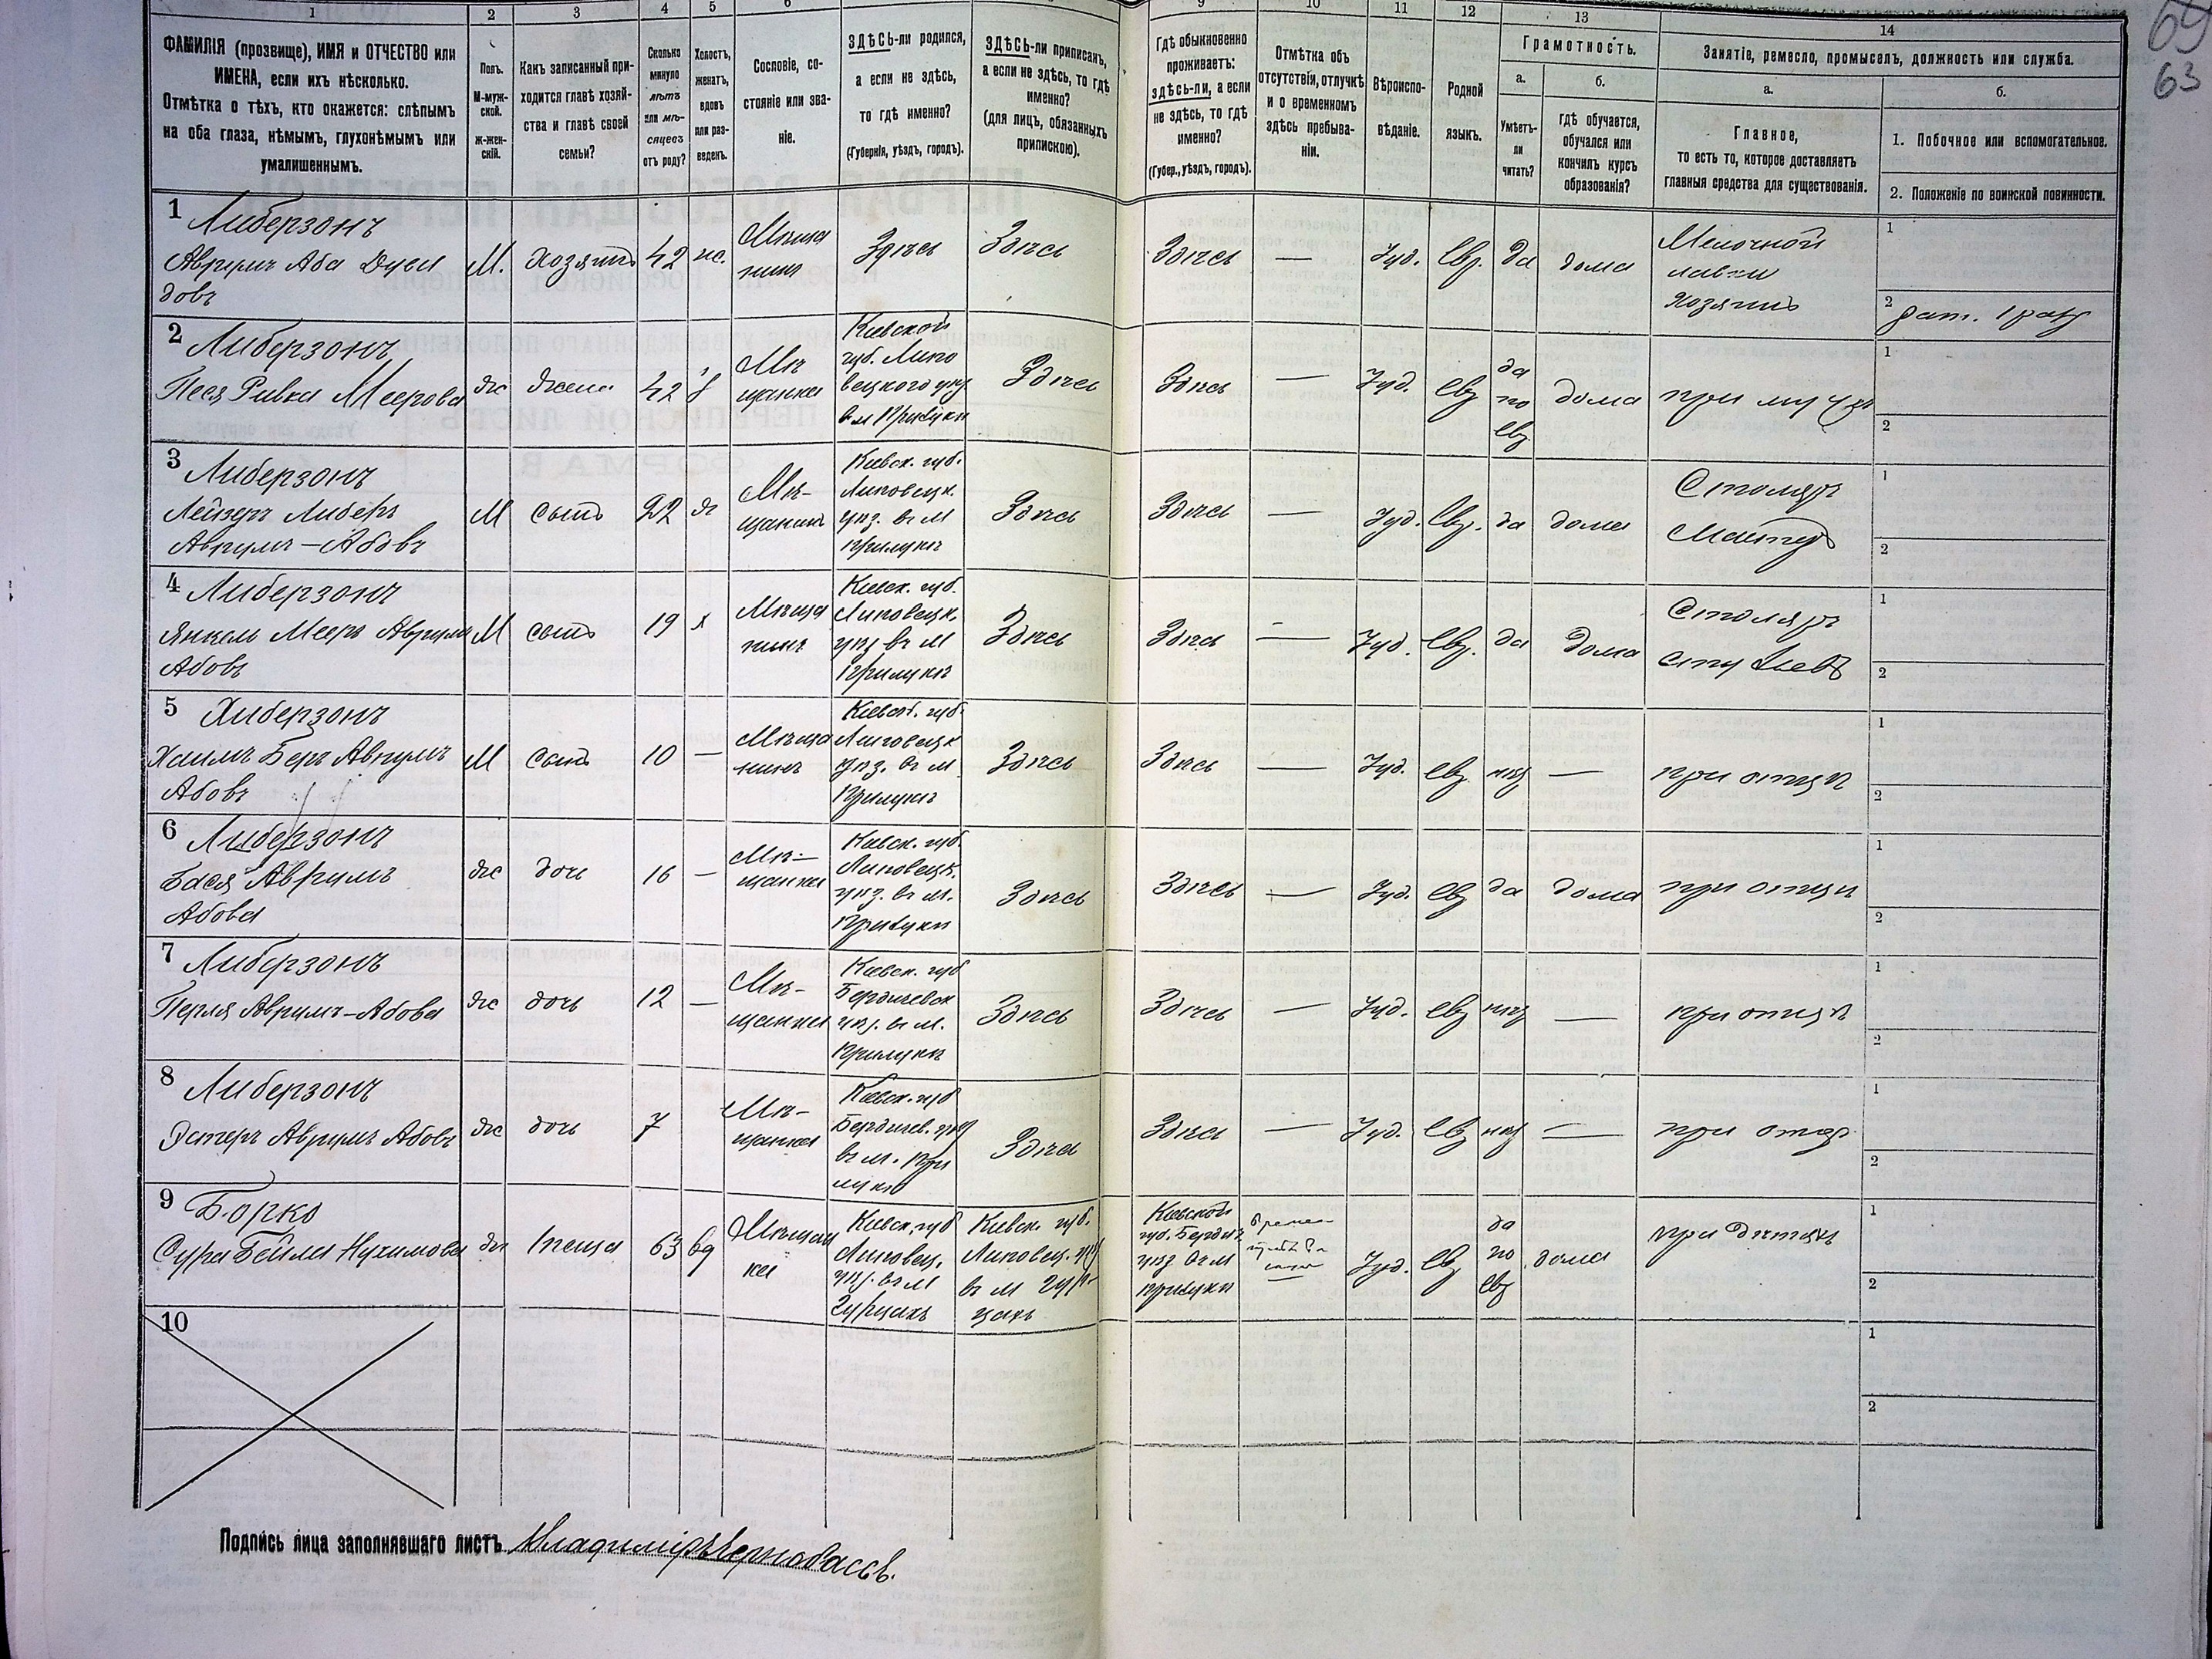 1 2 3 4 5 6 9 10 11 12 13 14
ФАМИЛІЯ (прозвище), ИМЯ и ОТЧЕСТВО или
ИМЕНА, если ихъ нѣсколько.
Отмѣтка о тѣхъ, кто окажется: слѣпымъ
на оба глаза, нѣмымъ, глухонѣмымъ или
умалишеннымъ.
Полъ.
М-муж-
ской.
Ж-жен-
скій.
Какъ записанный при-
ходится главѣ хозяй-
ства и главѣ своей
семьи?
Сколько
минуло
лѣтъ
или мѣ-
сяцевъ
отъ роду?
Холостъ,
женатъ,
вдовъ
или раз-
веденъ.
Сословіе, со-
стояніе или зва-
ніе.
ЗДѢСЬ-ли родился,
а если не здѣсь,
то гдѣ именно?
(Губернія, уѣздъ, городъ).
ЗДѢСЬ-ли приписанъ,
а если не здѣсь, то гдѣ
именно?
(для лицъ, обязанныхъ
припискою).
Гдѣ обыкновенно
проживаетъ:
здѣсь-ли, а если
не здѣсь, то гдѣ
именно?
(Губер., уѣздъ, городъ).
Отмѣтка объ
отсутствіи, отлучкѣ
и о временномъ
здѣсь пребыва-
ніи.
Вѣроиспо-
вѣданіе.
Родной
языкъ.
Грамотность.
а. б.
Умѣетъ-
ли
читать?
гдѣ обучается,
обучался или
кончилъ курсъ
образованія?
Занятіе, ремесло, промыселъ, должность или служба.
а. б.
Главное,
то есть то, которое доставляетъ
главныя средства для существованія.
1. Побочное или вспомогательное.
2. Положеніе по воинской повинности.
63
1 Либерзонъ
Аврумъ Аба
довъ
М. хозяинъ 42 ж.
Мѣща
нинъ
Здѣсь Здѣсь Здѣсь — Іуд. Евр. Да дома
Мелочной
лавки
хозяинъ
1
2
2 Либерзонъ
Песя Ривка Меерова
ж жена 42
Мѣ
щанка
Кіевской
губ. Липо
вецкаго уѣз
въ м Прилуки
Здѣсь Здѣсь — Іуд. евр
да
по
евр
дома при мужѣ
1
2
3 Либерзонъ
Лейзеръ Либеръ
Аврумъ-Абовъ
М сынъ 22 ж
Мѣ-
щанинъ
Кіевск. губ.
Липовецк.
уѣз. въ м
Прилукѣ
Здѣсь Здѣсь — Іуд. Евр. да дома
Столяръ
Мастеръ
1
2
4 Либерзонъ
Янкель Мееръ Аврумъ
Абовъ
М сынъ 19 х
Мѣща
нинъ
Кіевск. губ.
Липовецк.
уѣз въ м
Прилукѣ
Здѣсь Здѣсь — Іуд. Евр. да дома
Столяръ
стульевъ
1
2
5 Либерзонъ
Хаимъ Беръ Аврумъ
Абовъ
М сынъ 10 —
Мѣща
нинъ
Кіевск. губ.
Липовецк
уѣз. въ м
Прилукѣ
Здѣсь Здѣсь — Іуд. евр нѣт — при отцѣ
1
2
6 Либерзонъ
Бася Аврумъ
Абова
ж дочь 16 —
Мѣ-
щанка
Кіевск. губ.
Липовецк.
уѣз. въ м.
Прилуки
Здѣсь Здѣсь — Іуд. евр да дома при отцѣ
1
2
7 Либерзонъ
Перля Аврумъ-Абова
ж дочь 12 —
Мѣ-
щанка
Кіевск. губ
Бердичевск
уѣз. въ м.
Прилукѣ
Здѣсь Здѣсь — Іуд. евр нѣт — при отцѣ
1
2
8 Либерзонъ
Эстеръ Аврумъ Абовъ
ж дочь 7
Мѣ-
щанка
Кіевск. губ
Бердичев. уѣз
въ м. При
лукѣ
Здѣсь Здѣсь — Іуд. евр нѣт — при отцѣ
1
2
9 Борко
Сура Бейла Нухимова
ж теща 63 вд
Мѣщан
ка
Кіевск. губ
Липовец.
уѣз. въ м
Кіевск губ.
Липовец. уѣз
въ м
Кіевской
губ. Бердич
уѣз въ м
Прилуки
Іуд. евр
да
по
евр
дома при дѣтяхъ
1
2
10
1
2
Подпись лица заполнявшаго листъ Владиміръ